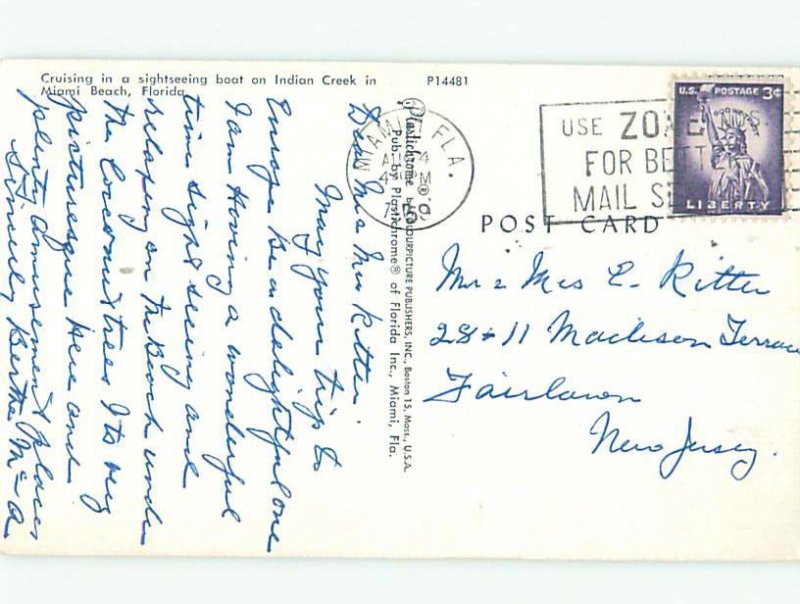 Cruising in a sightseeing boat on Indian Creek in
Miami Beach, Florida.
P14481
Dear Mr & Mrs Ritter.
May your trip to
Europe be a delightful one
I am Having a wonderful
time sight seeing and
relaxing on the Beach under
the Coconut trees Its very
picturesque Here and
plenty amusement places
Sincerely Bertha Mc A.
Plastichrome by COLOURPICTURE PUBLISHERS, INC., Boston 15, Mass., U.S.A.
Pub. by Plastichrome® of Florida Inc., Miami, Fla.
MIAMI FLA.
USE ZONE NOS.
FOR BETTER
MAIL
U.S. POSTAGE 3¢
LIBERTY
POST CARD
Mr & Mrs E. Ritter
28-11 Madison Terrace
Fairlawn
New Jersey.